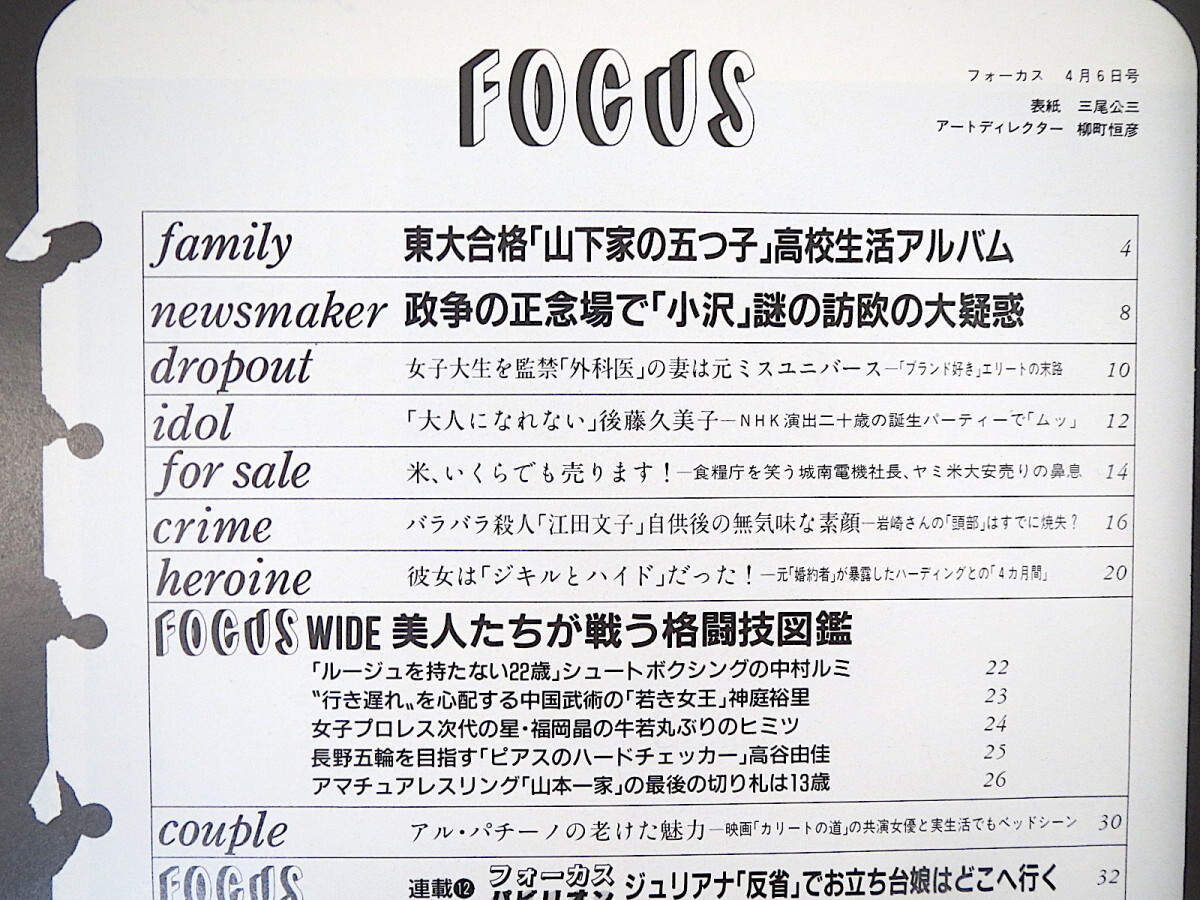 FOCUS
フォーカス 4月6日号
表紙 三尾公三
アートディレクター 柳町恒彦
family 東大合格「山下家の五つ子」高校生活アルバム 4
newsmaker 政争の正念場で「小沢」謎の訪欧の大疑惑 8
dropout 女子大生を監禁「外科医」の妻は元ミスユニバース―「ブランド好き」エリートの末路 10
idol 「大人になれない」後藤久美子―NHK演出二十歳の誕生パーティーで「ムッ」 12
for sale 米、いくらでも売ります!―食糧庁を笑う城南電機社長、ヤミ米大安売りの鼻息 14
crime バラバラ殺人「江田文子」自供後の無気味な素顔―岩崎さんの「頭部」はすでに焼失? 16
heroine 彼女は「ジキルとハイド」だった!―元「婚約者」が暴露したハーディングとの「4カ月間」 20
FOCUS WIDE 美人たちが戦う格闘技図鑑
「ルージュを持たない22歳」シュートボクシングの中村ルミ 22
〝行き遅れ〟を心配する中国武術の「若き女王」神庭裕里 23
女子プロレス次代の星・福岡晶の牛若丸ぶりのヒミツ 24
長野五輪を目指す「ピアスのハードチェッカー」高谷由佳 25
アマチュアレスリング「山本一家」の最後の切り札は13歳 26
couple アル・パチーノの老けた魅力―映画「カリートの道」の共演女優と実生活でもベッドシーン 30
FOCUS 連載⓬ フォーカス パビリオン ジュリアナ「反省」でお立ち台娘はどこへ行く 32